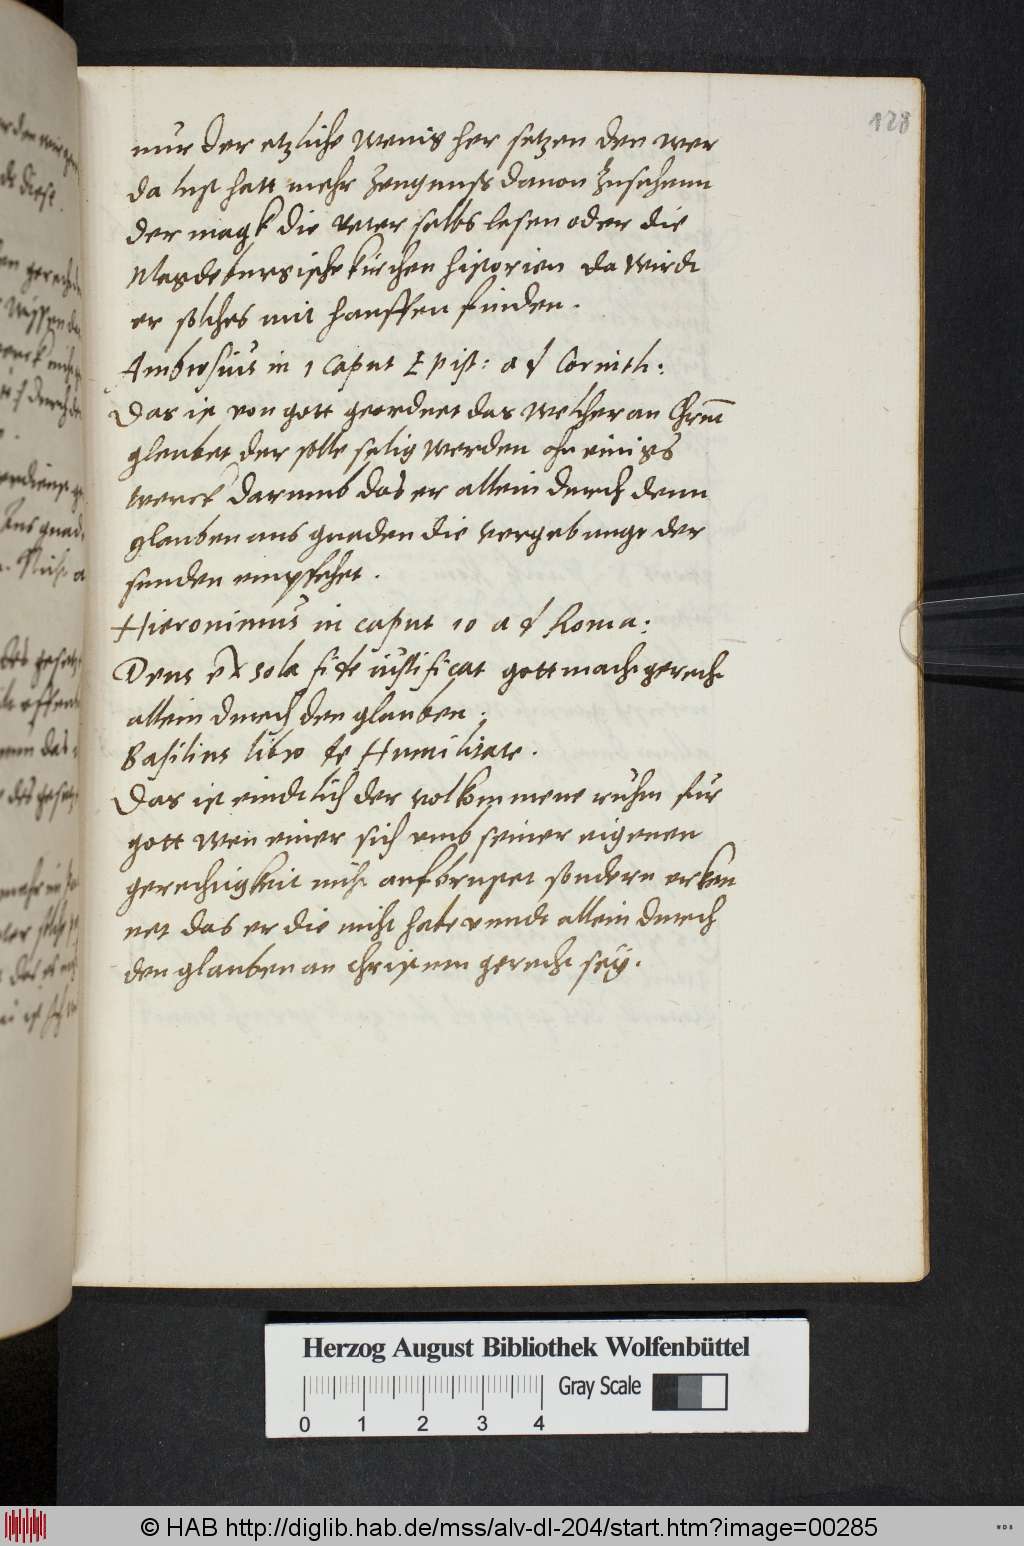 128
nur der etzliche wenig her setzen den wer
da lust hatt mehr zeugnuss dauon zusehenn
der magk die veter selbs lesen oder die
Magdeburgische kirchen historien da wirdt
er solches mit hauffen finden.
Ambrosius in 1 caput Epist: ad Corinth:
Das ist von gott geordnet das welcher an Chrm̄
gleubet der solle selig werden ohn einigs
werck darumb das er allein durch denn
glauben aus gnaden die vergebunge der
sunden empfehet.
Hieronimus in caput 10 ad Roma:
Deus ex sola fide iustificat gott macht gerecht
allein durch den glauben.
Basilius libro de Humilitate.
Das ist eindtlich der volkommene ruhm fur
gott wen einer sich umb seiner eigenen
gerechtigkeit nicht aufbrustet sondern erken
net das er die nicht habe vnndt allein durch
den glauben an Christum gerecht sey.
Herzog August Bibliothek Wolfenbüttel
0 1 2 3 4 Gray Scale
© HAB http://diglib.hab.de/mss/alv-dl-204/start.htm?image=00285